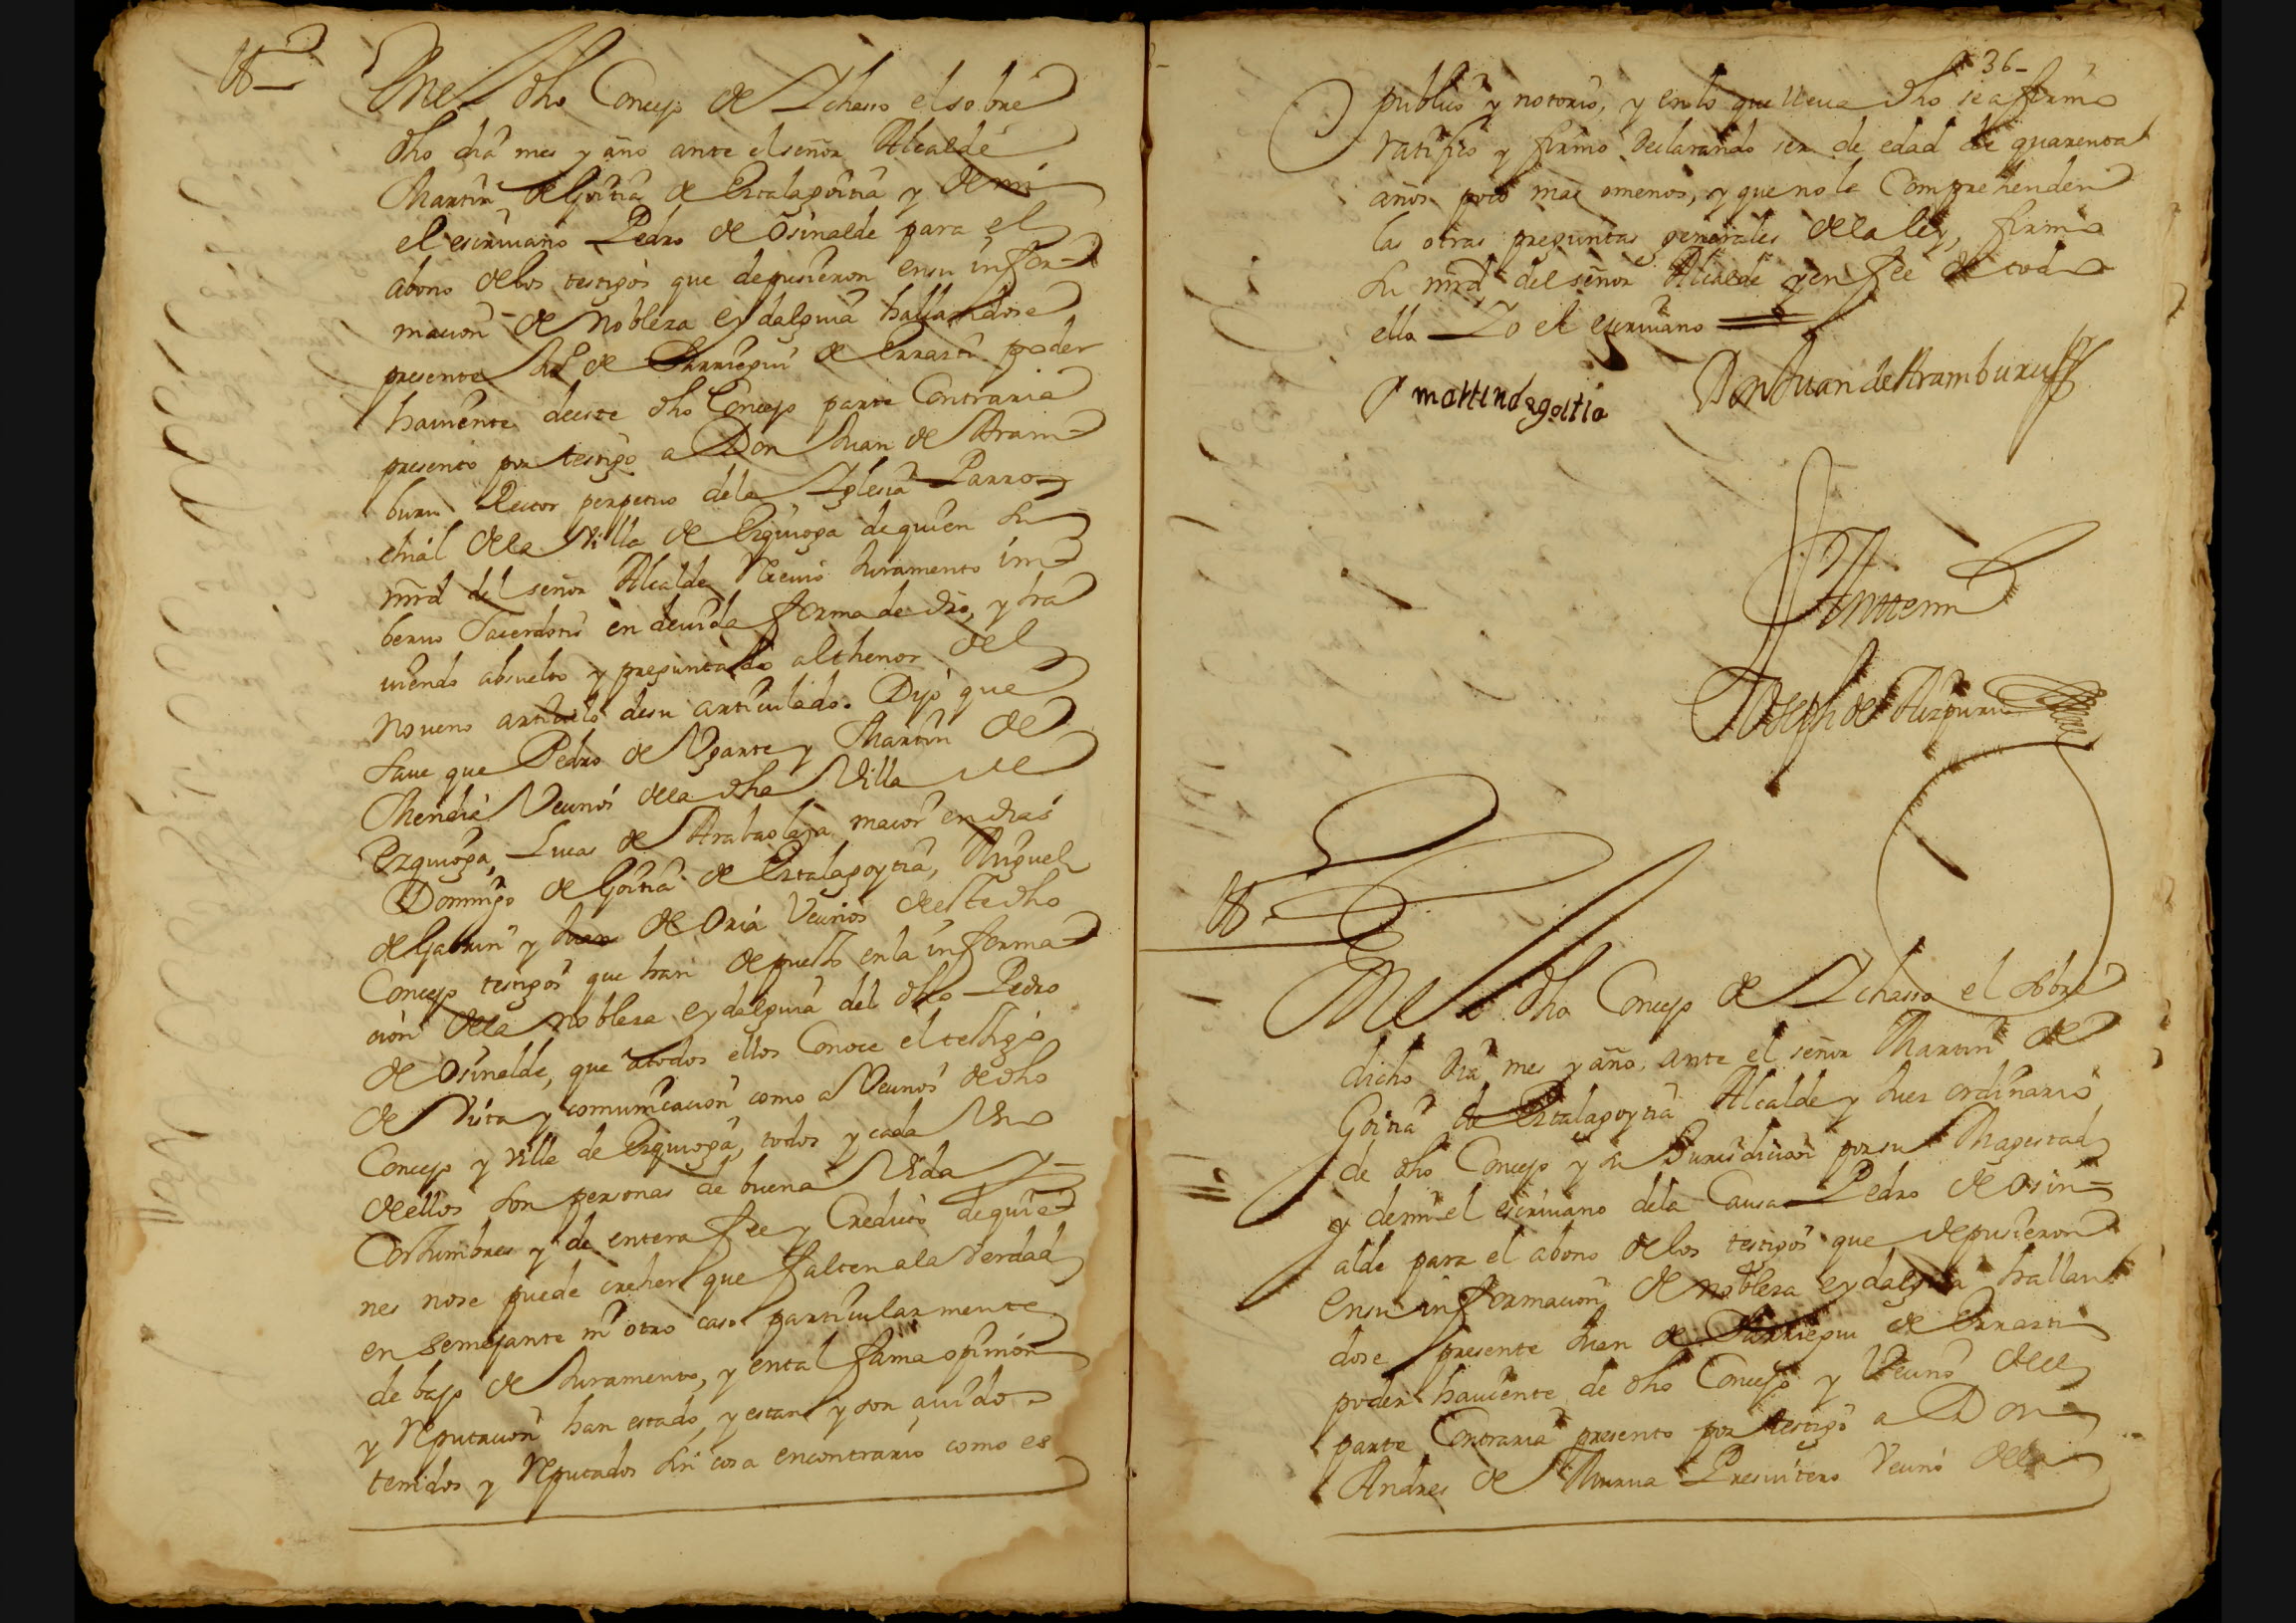 En el dho Concejo de Ichasso el sobre
dho dia mes y año ante el señor Alcalde
Martin de Goitia de Ertalagoitia y de mi
el escriuano Pedro de Osinalde para el
abono de los testigos que depusieron en su infor-
macion de nobleza eydalguia hallandose
presente de de Errazti poder
hauiente deeste dho Concejo parte Contraria
presento por testigo a Don Juan de Aram-
buru Rector perpetuo de la Iglesia Parro-
chial de la Villa de Ezquioga de quien su
mrd del señor Alcalde Receuio Juramento in
beruo Sacerdotis en deuida forma de dro, y ha
uiendo absuelto y preguntado al thenor del
noueno articulo de su articulado. Dijo que
saue que Pedro de Ugarte y Martin de
Mendia Vecinos de la dha Villa de
Ezquioga, Lucas de Arabaolaza maior en dias
Domingo de Goitia de Ertalagoytia, Miguel
de Gabiun y Juan de Oria Vecinos deste dho
Concejo testigos que han depuesto en la informa
cion de la nobleza eydalguia del dho Pedro
de Osinalde, que a todos ellos Conoce el testigo
de Vista y comunicacion como a Vecinos de dho
Concejo y Villa de Ezquioga, todos y cada Uno
de ellos son personas de buena Vida y
Costumbres y de entera fee y Credito de quie
nes no se puede creher que falten a la Verdad
en semejante ni otro caso particularmente
de bajo de Juramento, y en tal fama opinion
y Reputacion han estado, y estan y son auidos
tenidos y Reputados sin cosa en contrario como es
36
publico y notorio, y en lo que lleua dho se afirmo
ratifico y firmo Declarando ser de edad de quarenta
años poco mas o menos, y que no le Comprehenden
las otras preguntas generales de la ley, firmo
su mrd del señor Alcalde y en fee de todo
ello Yo el escriuano
martin de goitia Don Juan de Aramburu
Ante mi
Joseph de Aizpuru
En el dho Concejo de Ichasso el sobre
dicho dia mes y año, ante el señor Martin de
Goitia de Ertalagoytia Alcalde y Juez ordinario
de dho Concejo y su Jurisdicion por su Magestad
y de mi el escriuano de la Causa Pedro de Osin-
alde para el abono de los testigos que depusieron
en su informacion de nobleza eydalguia hallan
dose presente Juan de de Errazti
poder hauiente de dho Concejo y Vecino de el
parte Contraria presento por testigo a Don
Andres de Presuitero Vecino de la